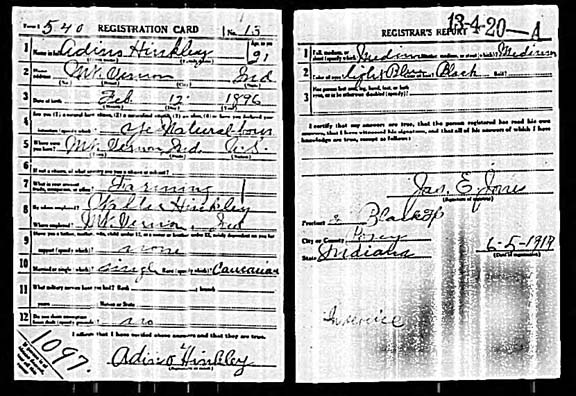 Form 1 540 REGISTRATION CARD No. 13
1 Name in full Adino Hinkley Age, in yrs 21
2 Home address Mt. Vernon Ind
3 Date of birth Feb. 12 1896
4 Are you (1) a natural born citizen, (2) a naturalized citizen, (3) an alien, (4) or have you declared your
intention (specify which)? Natural born
5 Where were you born? Mt. Vernon, Ind. U.S.
6 If not a citizen, of what country are you a citizen or subject?
7 What is your present trade, occupation, or office? Farming
8 By whom employed? Hinkley
Where employed? Mt Vernon, Ind
9 Have you a father, mother, wife, child under 12, or a sister or brother under 12, solely dependent on you for
support (specify which)? none
10 Married or single (which)? single Race (specify which)? Caucasian
11 What military service have you had? Rank branch
years Nation or State
12 Do you claim exemption from draft (specify grounds)? no
I affirm that I have verified above answers and that they are true.
1097.
Adino Hinkley
(Signature or mark)
13-4-20-A
REGISTRAR'S REPORT
1 Tall, medium, or short (specify which)? Medium Slender, medium, or stout (which)? Medium
2 Color of eyes? Light Blue Color of hair? Black Bald?
3 Has person lost arm, leg, hand, foot, or both
eyes, or is he otherwise disabled (specify)?
I certify that my answers are true, that the person registered has read his own
answers, that I have witnessed his signature, and that all of his answers of which I have
knowledge are true, except as follows:
Jas. E. Jones
(Signature of registrar)
Precinct 3 Black Tp
City or County Posey
State Indiana 6-5-1917
(Date of registration)
In service